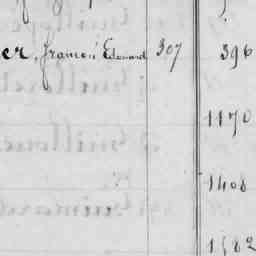 er, françois Edouard 307 396
1170
1408
1582